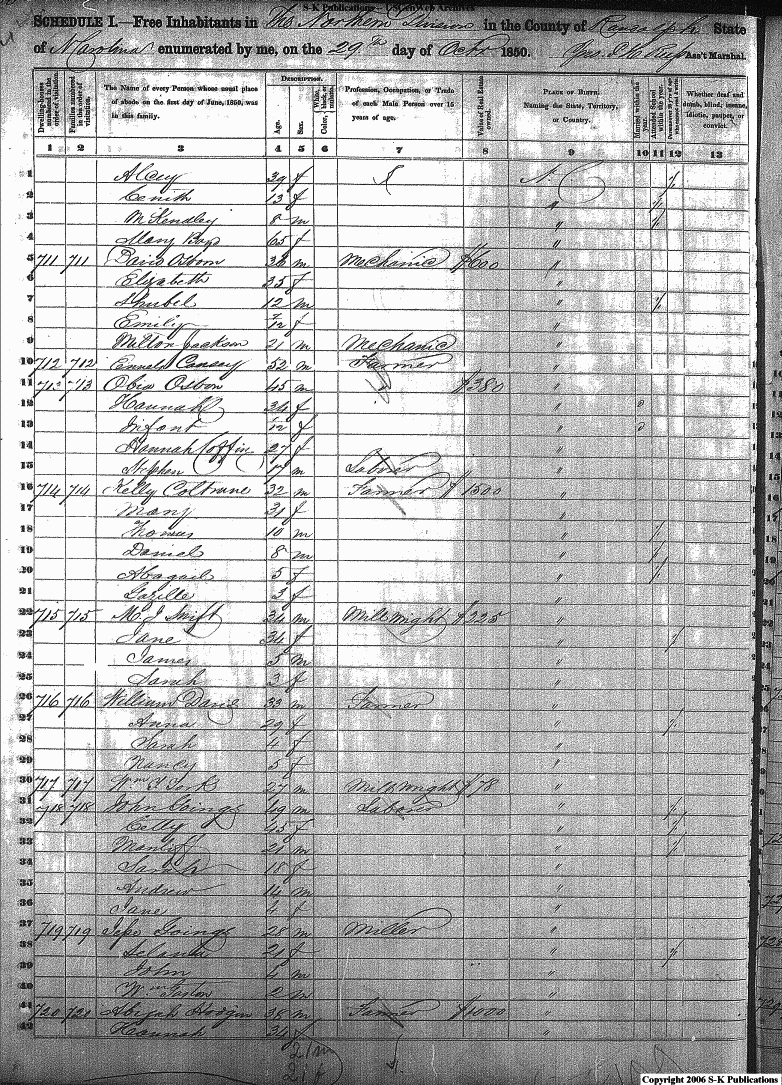 S-K Publications - USGenWeb Archives
SCHEDULE I.—Free Inhabitants in The Northern Division in the County of Randolph State
of N Carolina enumerated by me, on the 29th day of Octr 1850. Ass't Marshal.
Dwelling-houses numbered in the order of visitation.
Families numbered in the order of visitation.
The Name of every Person whose usual place of abode on the first day of June, 1850, was in this family.
DESCRIPTION.
Age.
Sex.
Color, White, black, or mulatto.
Profession, Occupation, or Trade of each Male Person over 15 years of age.
Value of Real Estate owned.
PLACE OF BIRTH.
Naming the State, Territory, or Country.
Married within the year.
Attended School within the year.
Whether deaf and dumb, blind, insane, idiotic, pauper, or convict.
1 2 3 4 5 6 7 8 9 10 11 12 13
1 Alcey 39 f N C /
2 Cenith 13 f " /
3 McKendley 8 m " /
4 Mary 65 f "
5 711 711 David Osborn 36 m Mechanic $600 "
6 Elizabeth 35 f "
7 12 m " /
8 Emily 7/12 f "
9 Milton Jackson 21 m Mechanic "
10 712 712 Causey 52 m Farmer "
11 713 713 Obed Osbon 45 m $380 "
12 Hannah 34 f "
13 Infant /12 f "
14 Hannah Coffin 27 f "
15 Stephen 17 m Laborer "
16 714 714 Kelly Coltrane 32 m Farmer $1500 "
17 Mary 31 f "
18 Thomas 10 m " /
19 Daniel 8 m " /
20 Abagail 5 f " /
21 3 f "
22 715 715 M. J Swift 34 m Millwright $225 "
23 Jane 34 f " /
24 James 5 m "
25 Sarah 3 f "
26 716 716 William Davis 33 m Farmer "
27 Anna 29 f " /
28 Sarah 4 f "
29 Nancy 5 f "
30 717 717 Wm York 27 m Millwright $78 "
31 718 718 John Goings 49 m Laborer " /
32 45 f " /
33 21 m " /
34 Sarah 18 f "
35 Andrew 14 m "
36 Jane 4 f "
37 719 719 Goings 28 m Miller "
38 21 f " /
39 John 4 m "
40 Wm 2 m "
41 720 720 Abijah Hodgin 38 m Farmer $1000 "
42 Hannah 34 f "
21 m
21 f
Copyright 2006 S-K Publications